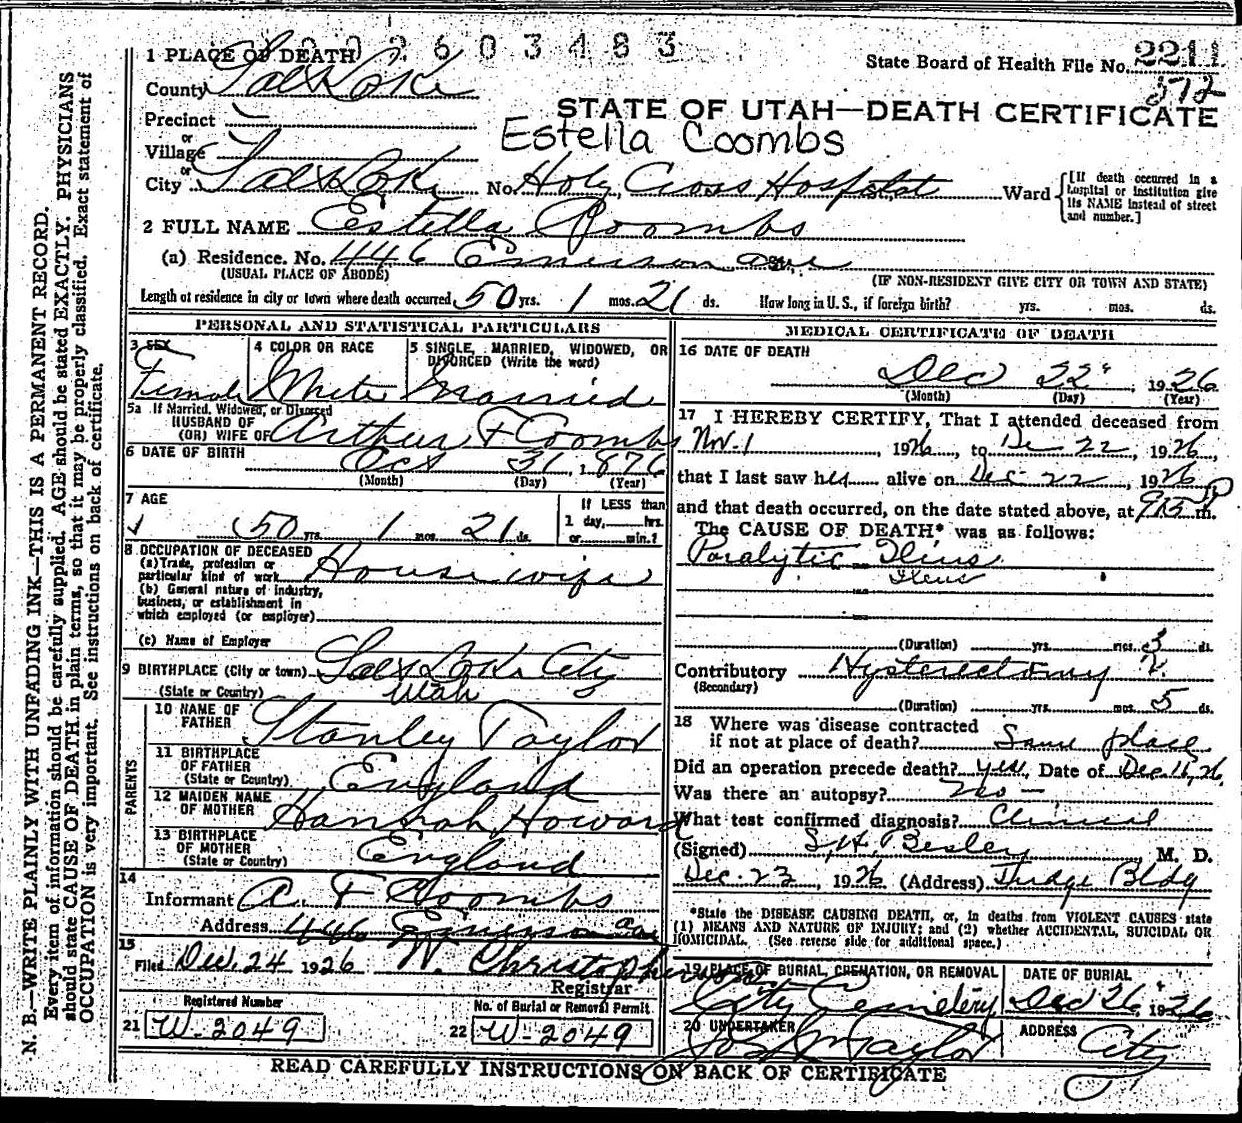 002603483
1 PLACE OF DEATH
State Board of Health File No. 2211
372
County Salt Lake
STATE OF UTAH—DEATH CERTIFICATE
Precinct
Estella Coombs
or
Village
or
City Salt Lake No. Holy Cross Hospital Ward
[If death occurred in a hospital or institution give its NAME instead of street and number.]
2 FULL NAME Estella Coombs
(a) Residence. No. 446 Emerson Ave
(USUAL PLACE OF ABODE) (IF NON-RESIDENT GIVE CITY OR TOWN AND STATE)
Length of residence in city or town where death occurred 50 yrs. 1 mos. 21 ds. How long in U. S., if foreign birth? yrs. mos. ds.
PERSONAL AND STATISTICAL PARTICULARS
3 SEX
Female
4 COLOR OR RACE
White
5 SINGLE, MARRIED, WIDOWED, OR DIVORCED (Write the word)
Married
5a If Married, Widowed, or Divorced
HUSBAND OF
(OR) WIFE OF Arthur F Coombs
6 DATE OF BIRTH
Oct 31, 1876
(Month) (Day) (Year)
7 AGE
50 yrs. 1 mos. 21 ds.
If LESS than
1 day, hrs.
or min.?
8 OCCUPATION OF DECEASED
(a) Trade, profession or
particular kind of work Housewife
(b) General nature of industry,
business, or establishment in
which employed (or employer)
(c) Name of Employer
9 BIRTHPLACE (City or town) Salt Lake City
(State or Country) Utah
PARENTS
10 NAME OF FATHER Stanley Taylor
11 BIRTHPLACE OF FATHER
(State or Country) England
12 MAIDEN NAME OF MOTHER Hannah Howard
13 BIRTHPLACE OF MOTHER
(State or Country) England
14
Informant A. F Coombs
Address 446 Emerson Ave
15
Filed Dec. 24 1926 W. Christopherson
Registrar
Registered Number
21 W-2049
No. of Burial or Removal Permit
22 W-2049
MEDICAL CERTIFICATE OF DEATH
16 DATE OF DEATH
Dec 22", 1926
(Month) (Day) (Year)
17 I HEREBY CERTIFY, That I attended deceased from
Nov. 1 1926, to Dec 22, 1926,
that I last saw her alive on Dec 22, 1926
and that death occurred, on the date stated above, at P m.
The CAUSE OF DEATH* was as follows:
Paralytic Ileus
Ileus
(Duration) yrs. mos. 3 ds.
Contributory Hysterectomy
(Secondary)
(Duration) yrs. mos. 5 ds.
18 Where was disease contracted
if not at place of death? Same place
Did an operation precede death? yes, Date of Dec. 16, 26
Was there an autopsy? no —
What test confirmed diagnosis? Clinical
(Signed) S. H. Besley M. D.
Dec. 23, 1926 (Address) Judge Bldg
*State the DISEASE CAUSING DEATH, or, in deaths from VIOLENT CAUSES state
(1) MEANS AND NATURE OF INJURY; and (2) whether ACCIDENTAL, SUICIDAL OR
HOMICIDAL. (See reverse side for additional space.)
19 PLACE OF BURIAL, CREMATION, OR REMOVAL
City Cemetery
DATE OF BURIAL
Dec 26, 1926
20 UNDERTAKER
Jos Wm Taylor
ADDRESS
City
READ CAREFULLY INSTRUCTIONS ON BACK OF CERTIFICATE
N. B.—WRITE PLAINLY WITH UNFADING INK—THIS IS A PERMANENT RECORD.
Every item of information should be carefully supplied. AGE should be stated EXACTLY. PHYSICIANS
should state CAUSE OF DEATH in plain terms, so that it may be properly classified. Exact statement of
OCCUPATION is very important. See instructions on back of certificate.